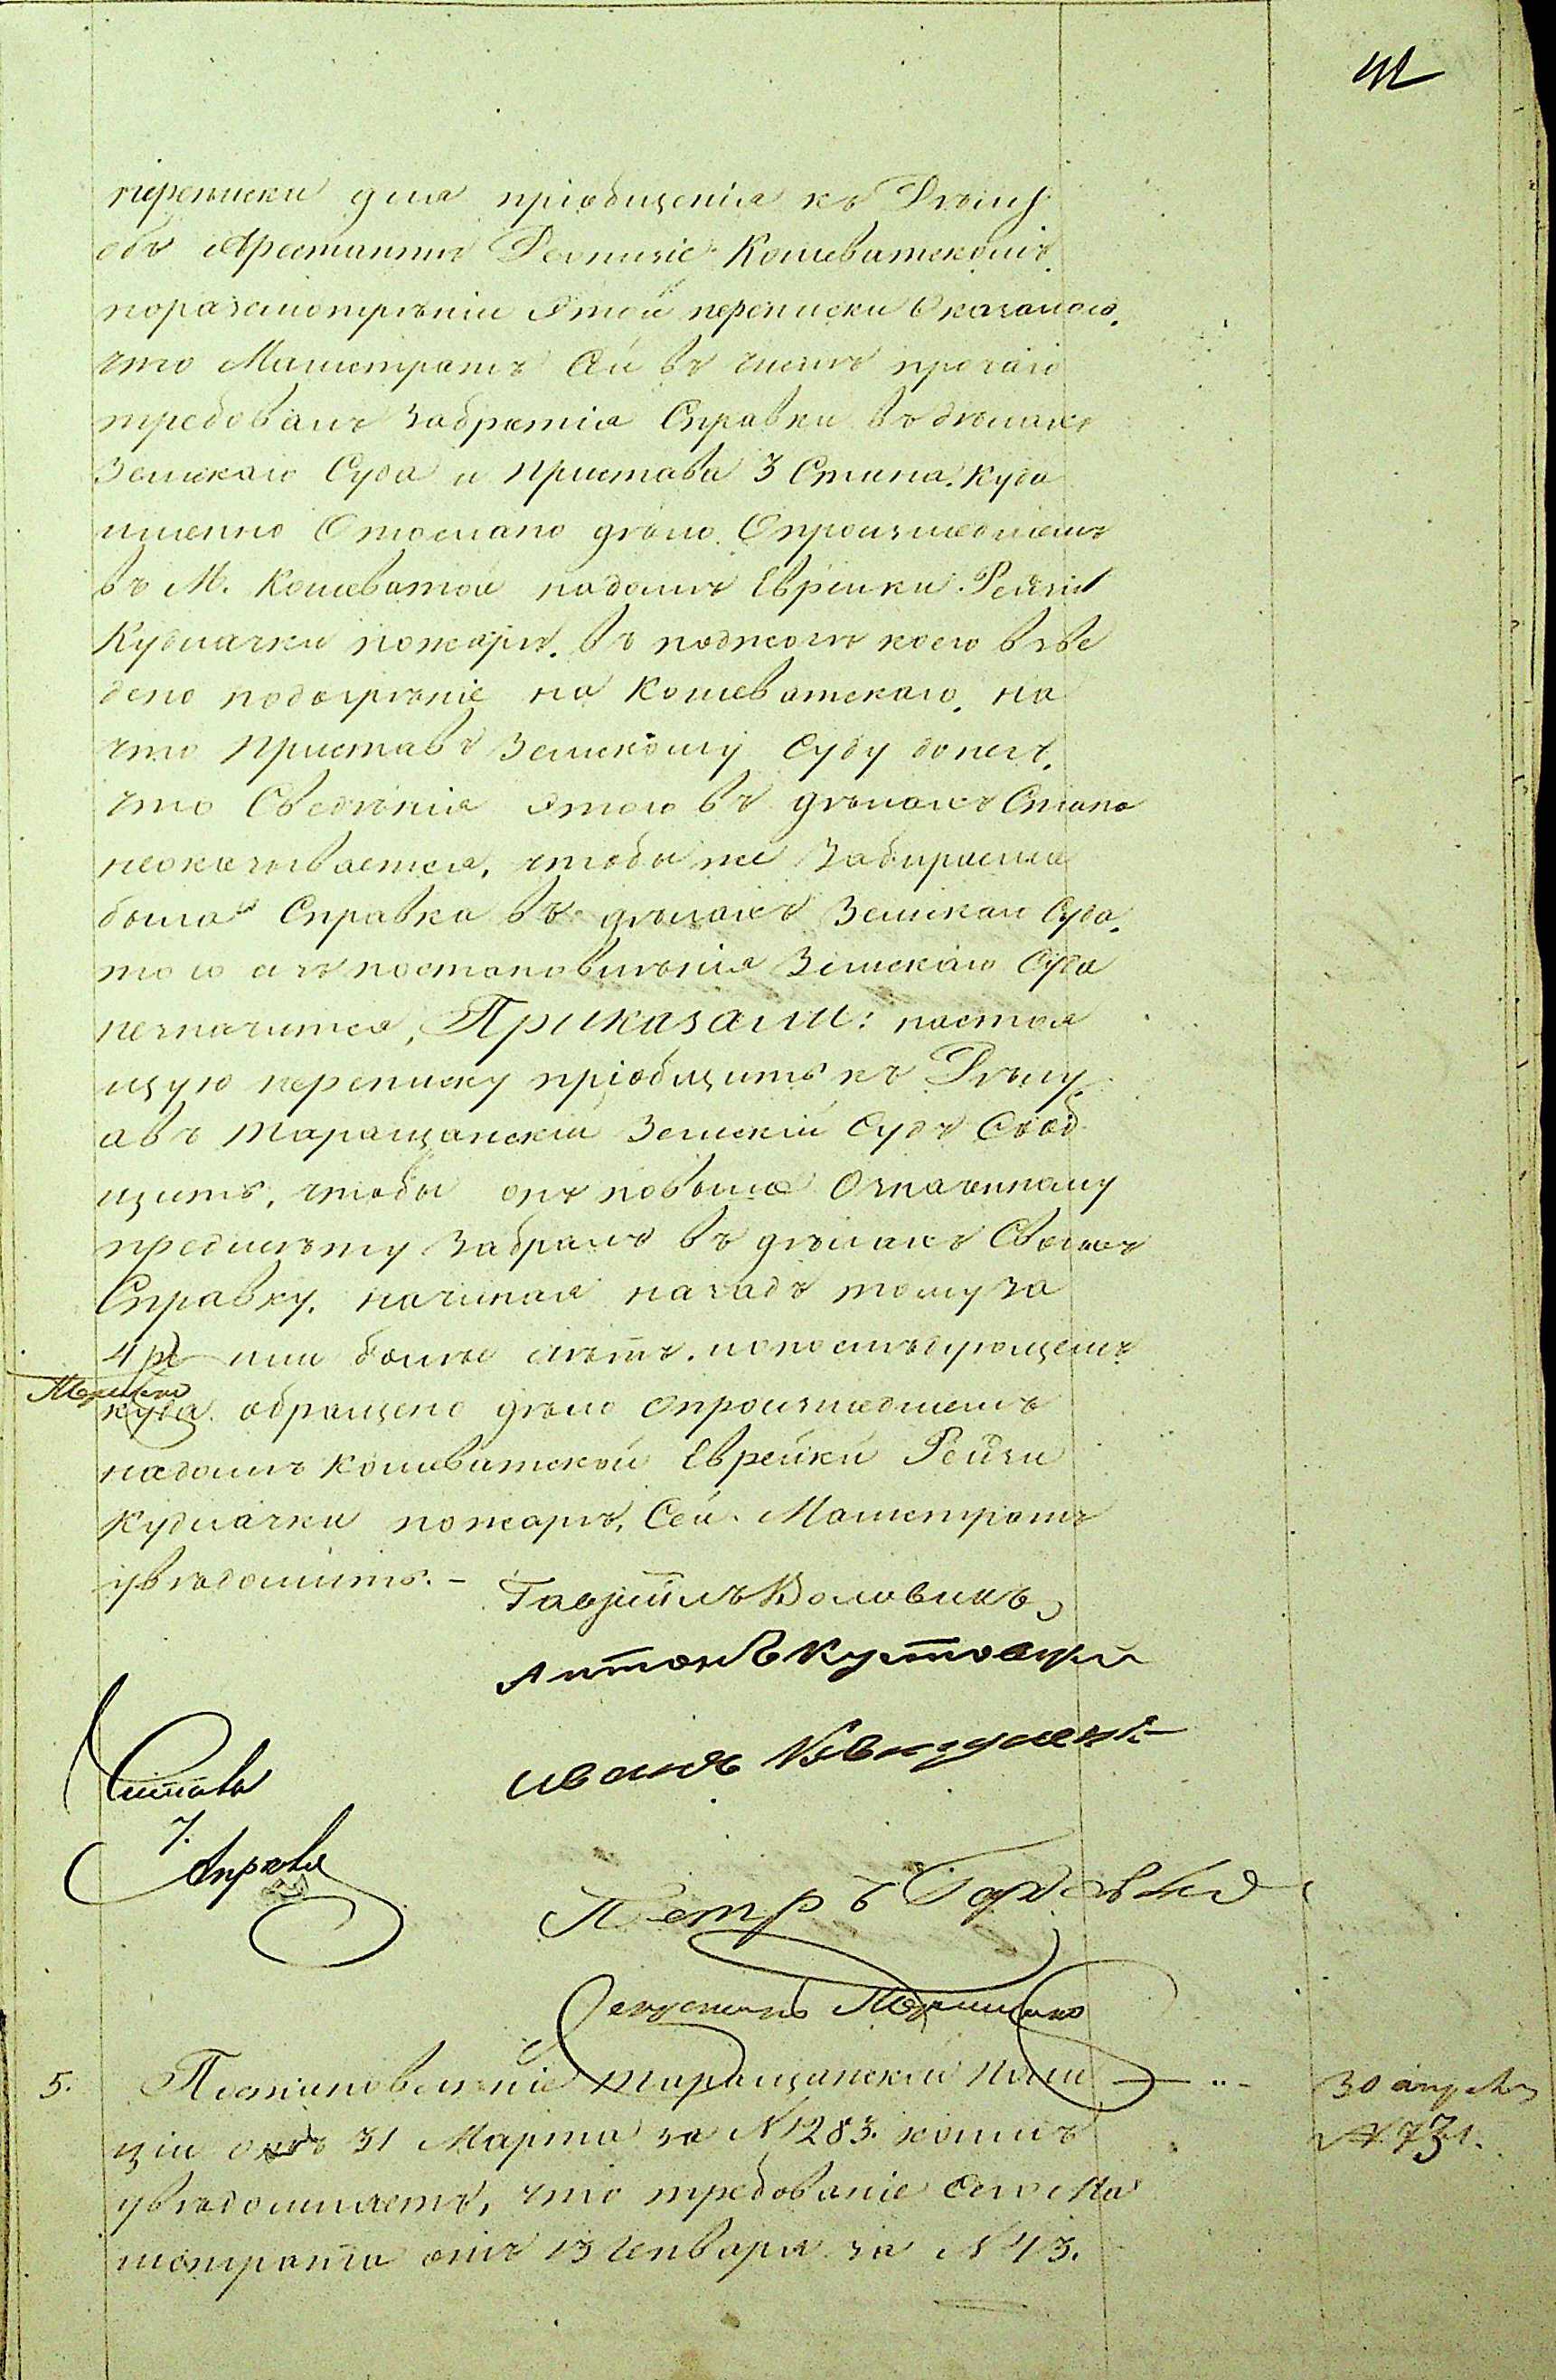 переписки для пріобщенія къ Дѣлу
объ Арестантѣ Леонтіе Кошеватскомъ,
поразсмотрѣніи Этой переписки Оказалось,
что Магистратъ Сей въ числѣ прочаго
требовалъ забратія Справки въ дѣлахъ
Земскаго Суда и Пристава 3 Стана. Куда
именно Отослано дѣло Опроизшедшемъ
въ М. Кошеватой надомѣ Еврейки Рейзи
Кудлачки пожарѣ, въ поджогѣ коего взве
дено подозрѣніе на Кошеватскаго, на
что Приставъ Земскому Суду донесъ,
что Сведѣнія Этого въ дѣлахъ Стана
неоказывается, чтобы же Забираема
была Справка въ дѣлахъ Земскаго Суда,
того изъ постановленія Земскаго Суда
незначится, Приказали: настоя
щую переписку пріобщить къ Дѣлу,
авъ Таращанскій Земскій Судъ Сооб
щить, чтобы онъ повыше Означенному
предмѣту забралъ въ дѣлахъ Своихъ
Справку, начиная назадъ тому за
4 или болѣе лѣтъ, ипопослѣдующемъ
куда обращено дѣло Опроизшедшемъ
надомѣ Кошеватской Еврейки Рейзи
Кудлачки пожарѣ, Сей Магистратъ
увѣдомить. –
Гавріилъ Воловикъ
Антонъ Кутовый
Иванъ
Читалъ
7.
Апреля
Петръ
Секретарь
5. Постановленіе Таращанской Поли
ціи отъ 31 Марта за № 1283. коимъ
увѣдомляетъ, что требованіе Сего Ма
гистрата отъ 13 Генваря за № 43.
30 апреля
№ 731.